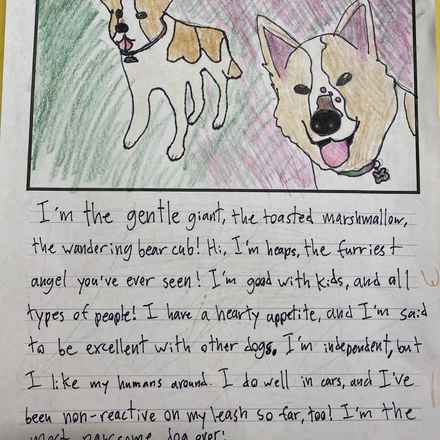 I'm the gentle giant, the toasted marshmallow,
the wandering bear cub! Hi, I'm heaps, the furriest
angel you've ever seen! I'm good with kids, and all
types of people! I have a hearty appetite, and I'm said
to be excellent with other dogs. I'm independent, but
I like my humans around. I do well in cars, and I've
been non-reactive on my leash so far, too! I'm the
most pawsome dog ever!